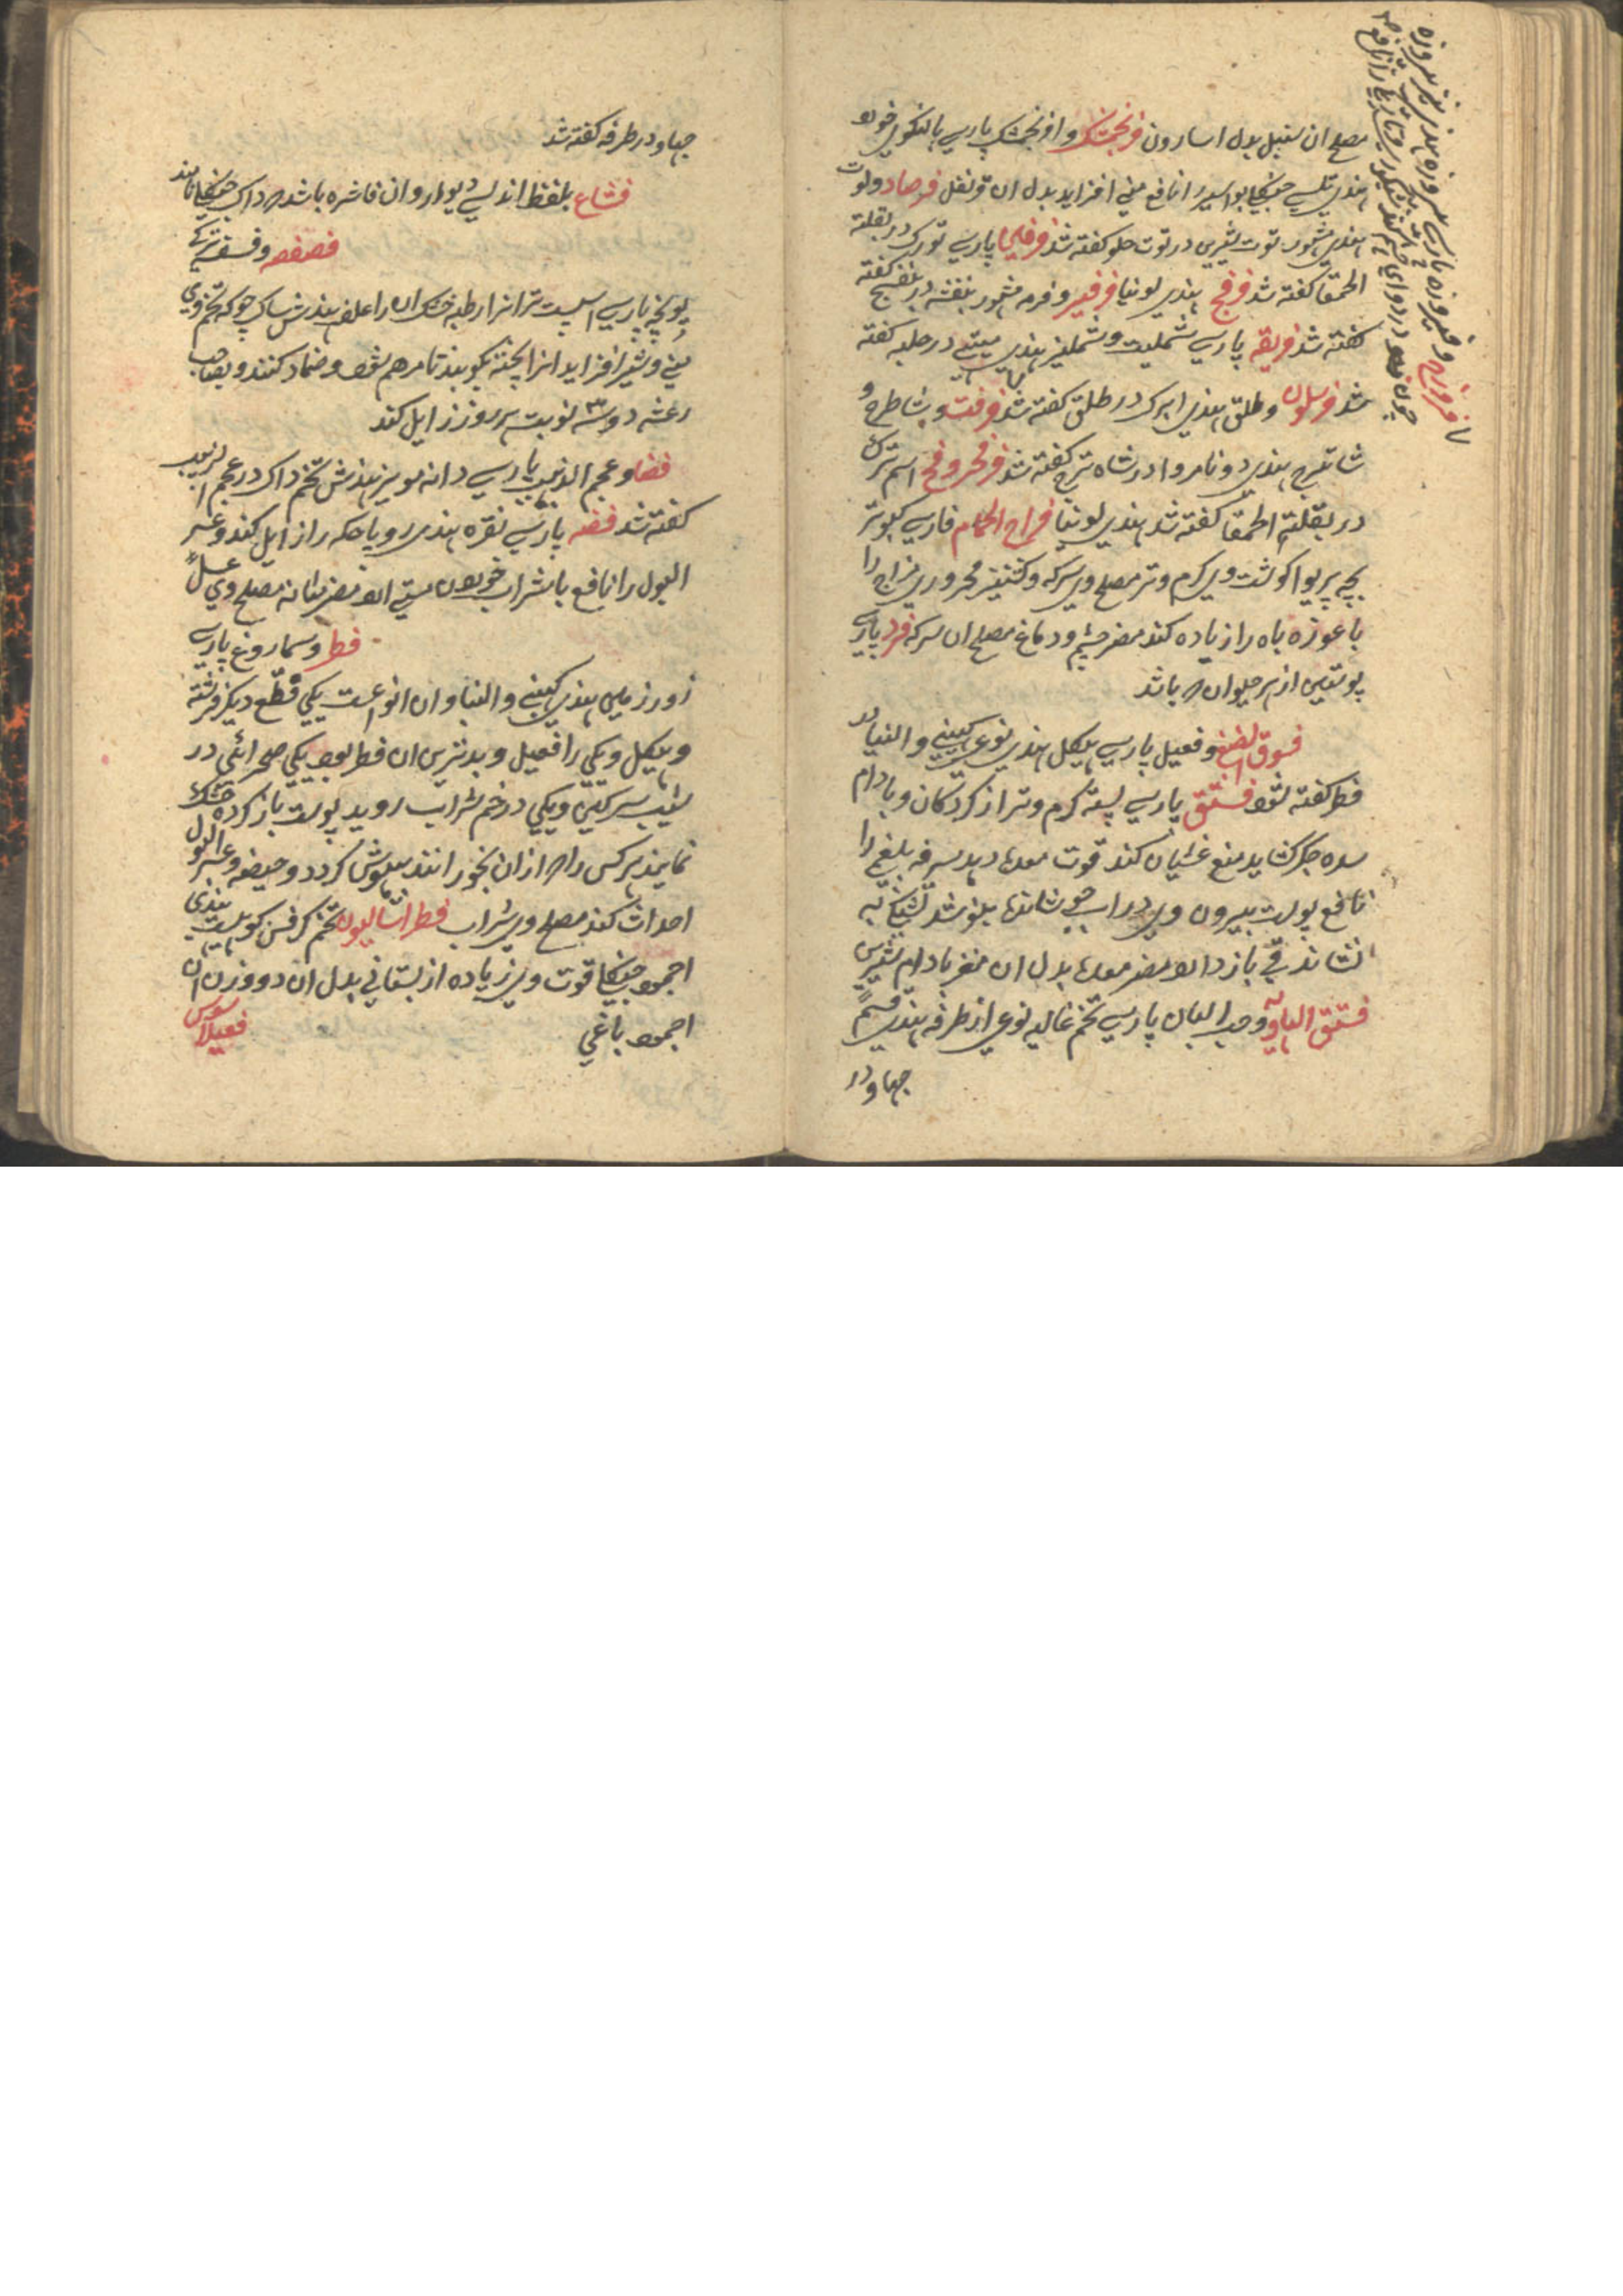 مصلح ان سنبل بدل اسارون فرنجمشک وافرنجمشک پارسی بالنکوی خورد
هندی تلسی جنکلی بواسیر را نافع منی افزاید بدل ان قرنفل فرصاد و توت
هندی مشهور توت شیرین در توت حلو کفته شد فرفین پارسی تورک در بقلته
الحمقا کفته شد فرفخ هندی لونیا فرفیر و فرمه مشهور بنفشه در بنفسج کفته
کفته شد فریقه پارسی شملیت و شملیز هندی میتی در حلبه کفته
شد فرسلون و طلق هندی ابرک در طلق کفته شد فرفت و شاطرج و
شاتیرج هندی دونامروا در شاه ترج کفته شد فرفخ اسم ترک
در بقلته الحمقا کفته شد هندی لونیا فراخ الحمام فارسی کبوتر
بچه پریوا کوشت وی کرم و تر مصلح وی سرکه و کشنیز محروری مزاج را
با غوزه باه را زیاده کند مضر چشم و دماغ مصلح ان سرکه فرد پارسی
پوستین از هر حیوان که باشد
فسوق الضبع و فعیل پارسی هیکل هندی نوعی کهنبی و النیا در
فطر کفته شود فستق پارسی پسته کرم و تر از کردکان و بادام
سده جکر کشاید منع غثیان کند قوت معده دهد سرفه بلغمی را
نافع پوست بیرون وی در اب جوشانند بنوشد تشنکی به
نشاند قی باز دارد مضر معده بدل ان مغز بادام شیرین
فستق الهاویه و حب البان پارسی تخم غالیه نوعی از طرفه هندی قسم
جهاو در
فروزج و فیروزه پارسی پیروزه هندی نیز پیروزه
جهاو در طرفه کفته شد
فشاغ بلفظ اندلسی دیودار و ان فاشره باشد که داک جنکلی نامند
فصفصه و فسفسه ترکی
یونجه پارسی اسپست تر انرا رطبه خشک ان را علف هندش ساک چوکه تخم وی
منی و شیر افزاید انرا پخته بکوبند تا مرهم شود و ضماد کنند و بصاحب
رعشه دو سه نوبت هر روز زایل کند
فضا و عجم الذبیب پارسی دانه مویز هندش تخم داک در عجم الزبیب
کفته شد فضه پارسی نقره هندی روپا حکه را زایل کند و عسر
البول را نافع با شراب خوردن مستی ارد مضر مثانه مصلح وی عسل
فطر و سماروغ پارسی
زور زمین هندی کهنبی و النیا و ان انواعست یکی قطع دیکر فرشته
و هیکل و یکی را فعیل و بدترین ان فطر بود یکی صحرائی در
شیب سرکین و یکی در خم شراب روید پوست باز کرده خشک
نمایند هر کس را که از ان بخورانند بیهوش کردد و حیضه و عسر البول
احداث کند مصلح وی شراب فطراسالیون تخم کرفس کوهیست هندی
اجمود جنکلی قوت وی زیاده از بستانی بدل ان دو وزن ان
اجمود باغی